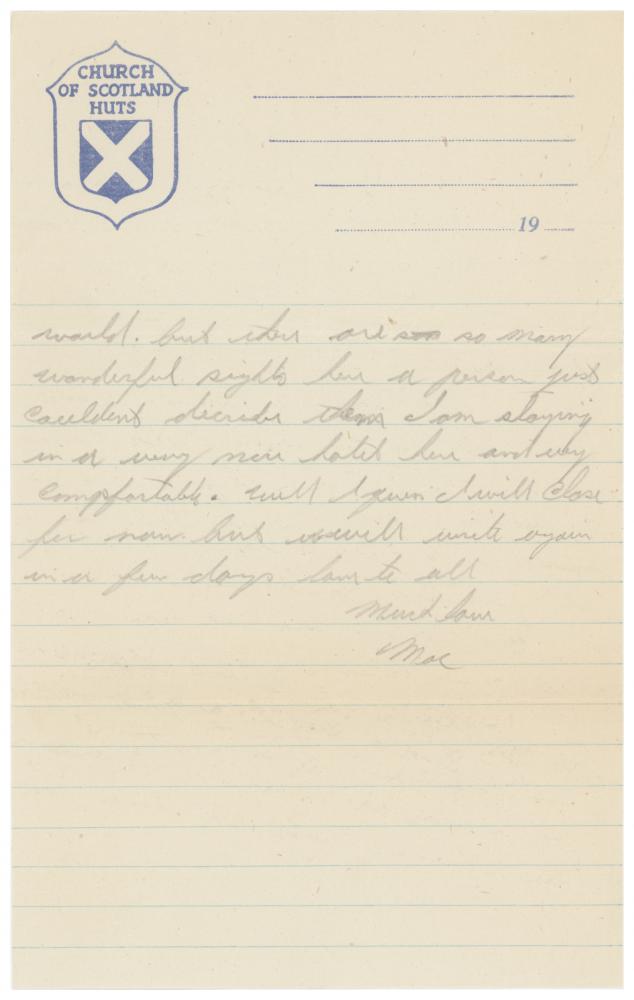 CHURCH
OF SCOTLAND
HUTS
19
world. but ther are so many
wonderful sights her a person just
couldent decribe them I am staying
in a very nice hotel her and very
compfortable. well I gues I will close
for now but will write again
in a few days love to all
Much love
Mac